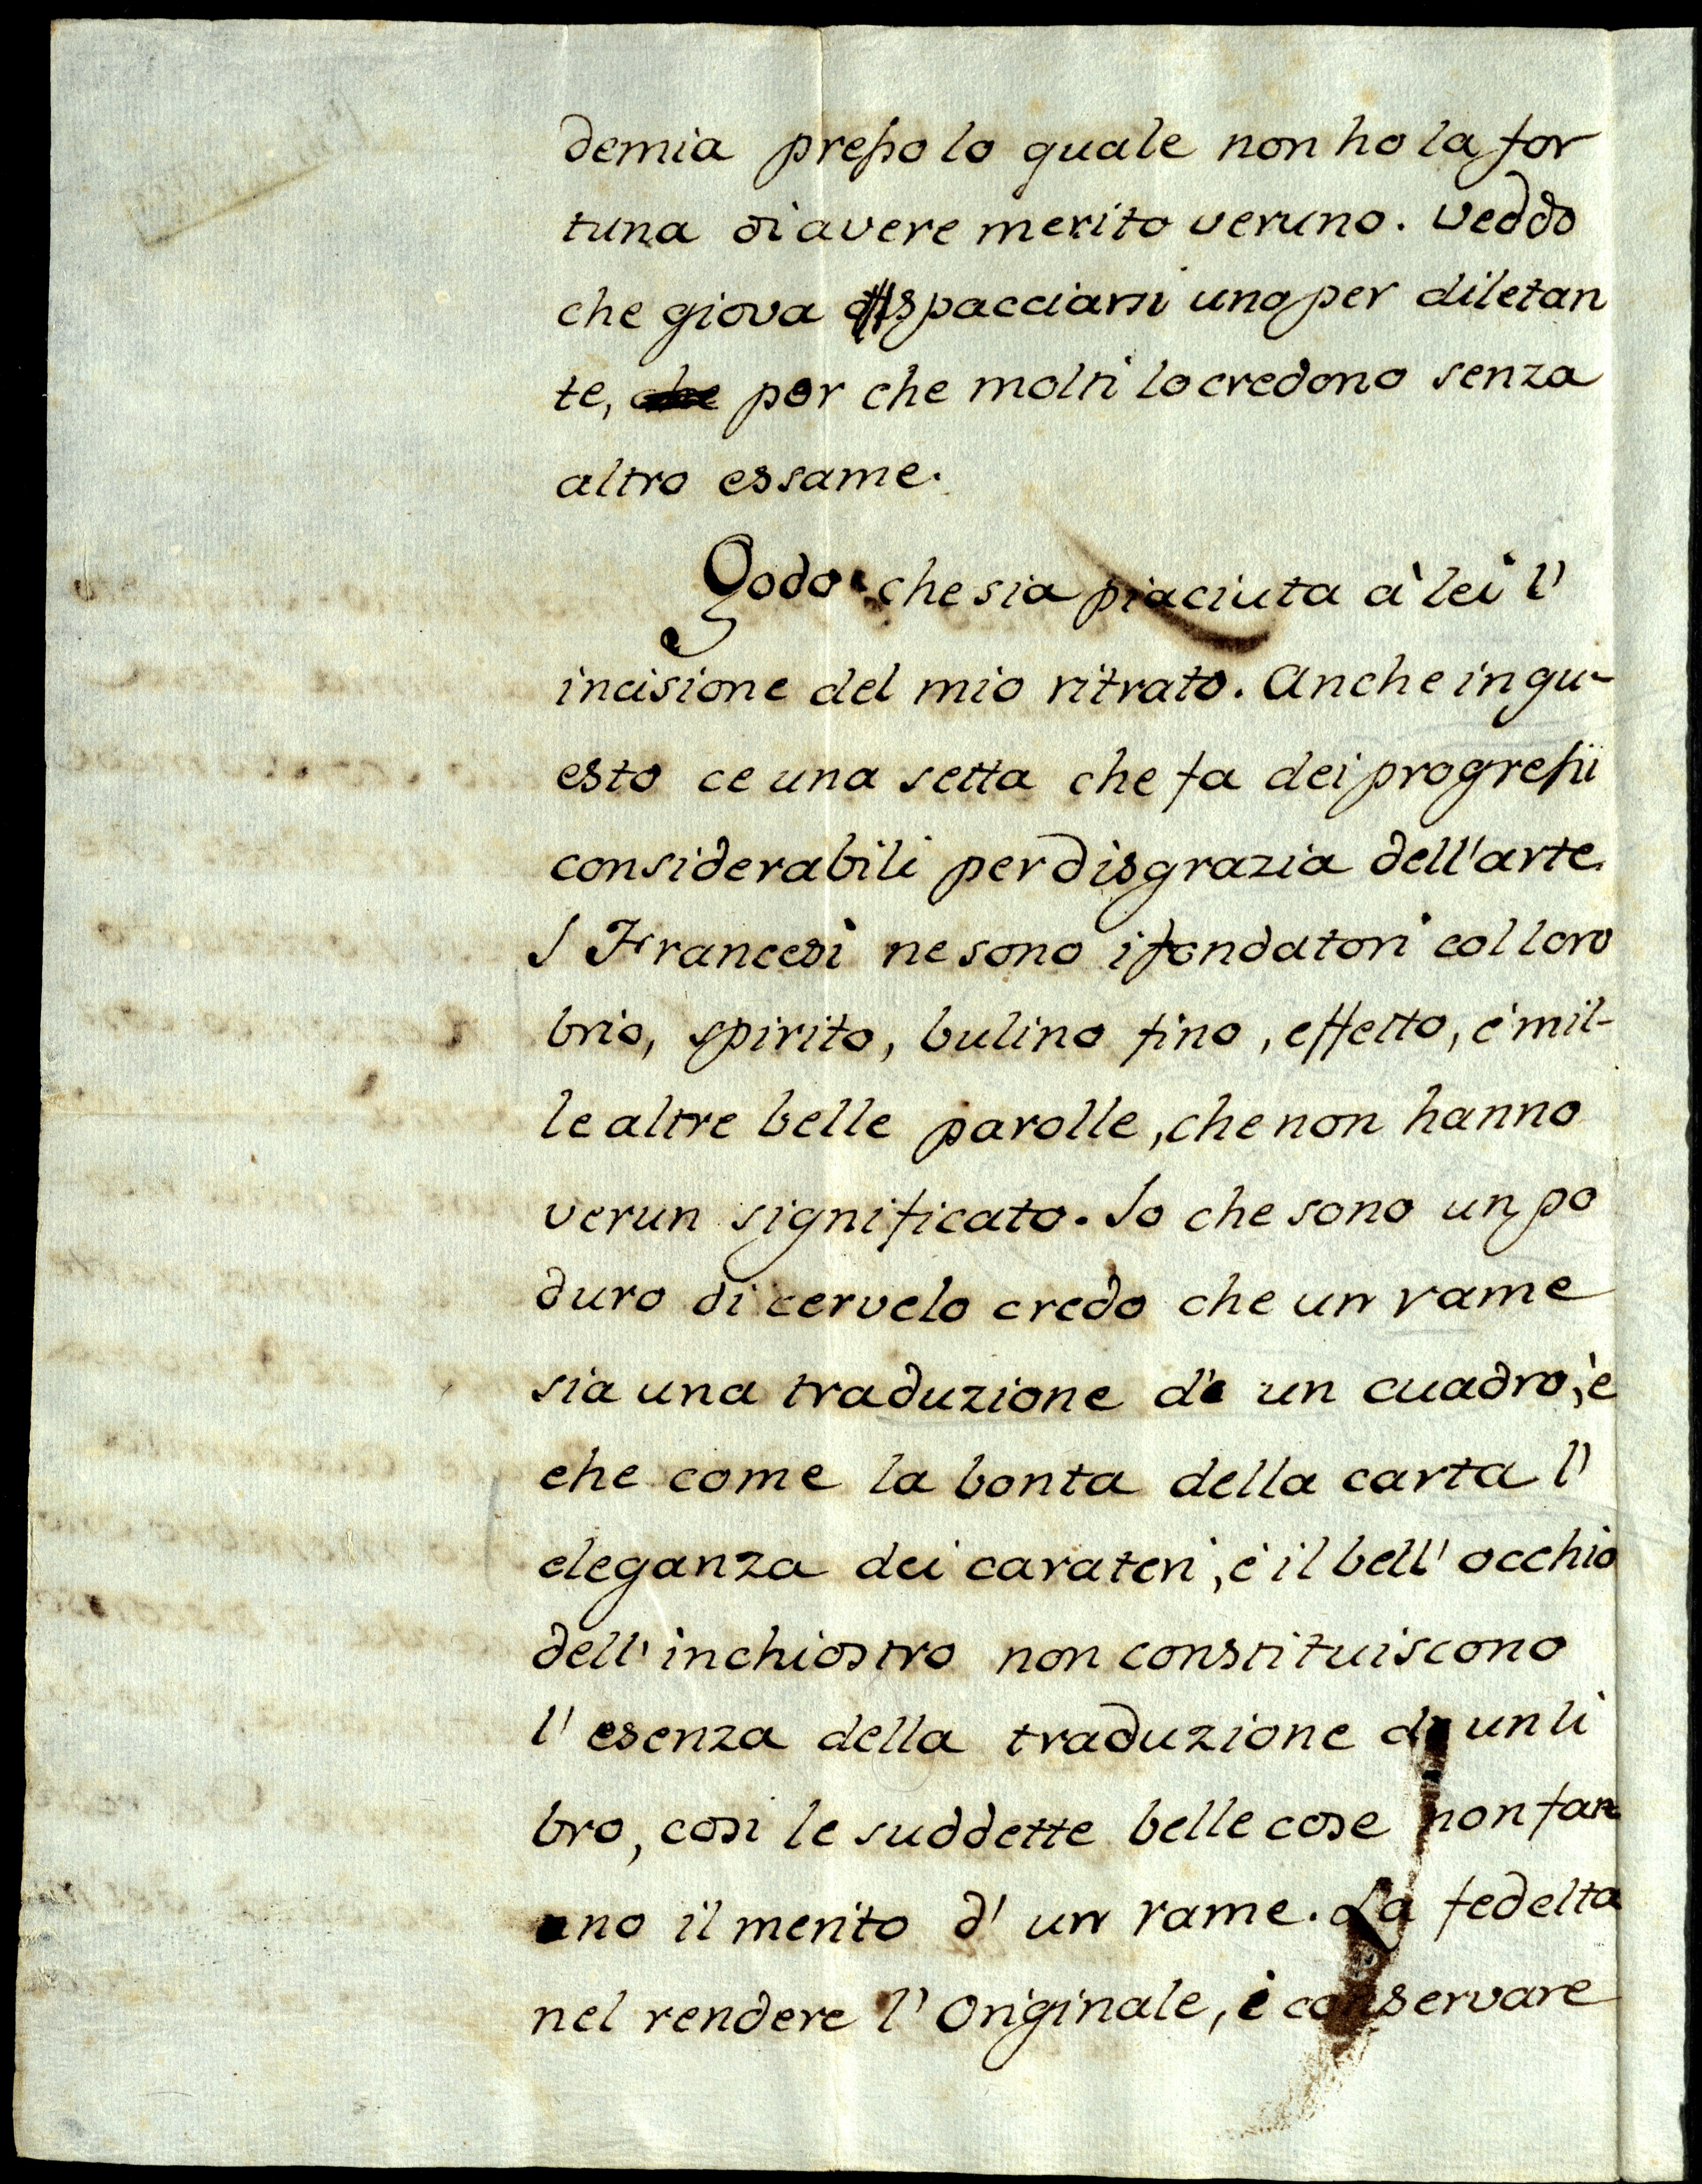 demia presso lo quale non ho la for
tuna di avere merito veruno. Veddo
che giova spacciarsi uno per diletan
te, per che molti lo credono senza
altro essame.
Godo che sia piaciuta à lei l'
incisione del mio ritrato. Anche in qu-
esto ce una setta che fa dei progressi
considerabili per disgrazia dell'arte
I Francesi ne sono i fondatori col loro
brio, spirito, bulino fino, effetto, é mil-
le altre belle parolle, che non hanno
verun significato. Io che sono un po
duro di cervelo credo che un rame
sia una traduzione de un cuadro, è
che come la bonta della carta l'
eleganza dei carateri, é il bell' occhio
dell' inchiostro non constituiscono
l' esenza della traduzione un li
bro, cosi le suddette belle cose non fan
no il merito d' un rame. La fedelta
nel rendere l' Originale, é conservare